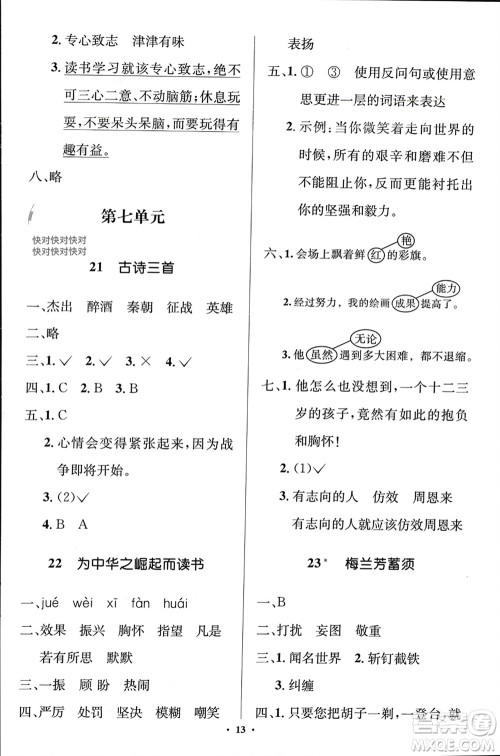 2. 专心致志 津津有味
3. 读书学习就该专心致志，不
可三心二意、不动脑筋；休息玩
耍，不要呆头呆脑，而要玩得有
趣有益。
八、略
第七单元
快对快对快对
快对快对快对
21 古诗三首
一、杰出 醉酒 秦朝 征战 英雄
二、略
三、1.✓ 2.✓ 3.× 4.✓
四、1. C 2. B 3. C
五、1. C
2. 心情会变得紧张起来，因为战
争即将开始。
3. (2)✓
4. B A
22 为中华之崛起而读书
一、jué wèi xī fàn huái
二、效果 振兴 胸怀 指望 凡是
若有所思 默默
三、一振 顾 盼 热闹
四、严厉 处罚 坚决 模糊 嘲笑
表扬
五、1. ① ③ 使用反问句或使用意
思更进一层的词语来表达
2. 示例：当你微笑着走向世界的
时候，所有的艰辛和磨难不但不
能阻止你，反而更能衬托出
你的坚强和毅力。
艳
六、1. 会场上飘着鲜红的彩旗。
能力
2. 经过努力，我的绘画成果提高了。
无论
3. 他虽然遇到多大困难，都不退缩。
七、1. 他怎么也没想到，一个十二三
岁的孩子，竟然有如此的抱负
和胸怀！
2. (1)✓
3. 有志向的人 仿效 周恩来
有志向的人就应该仿效周恩来
23* 梅兰芳蓄须
一、B
二、打扰 妄图 敬重
三、1. 闻名世界 2. 斩钉截铁
3. 纠缠
四、1. 只要您把胡子一剃，一登台，就
· 13 ·
大案网